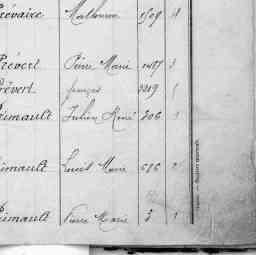 Prévaire Mathurin 1509
Prévert Pierre Marie 1487 3
Prévert françois 3319 1
Primault Julien René 306 1
Primault Louis Marie 616 2
Primault Pierre Marie 3 1